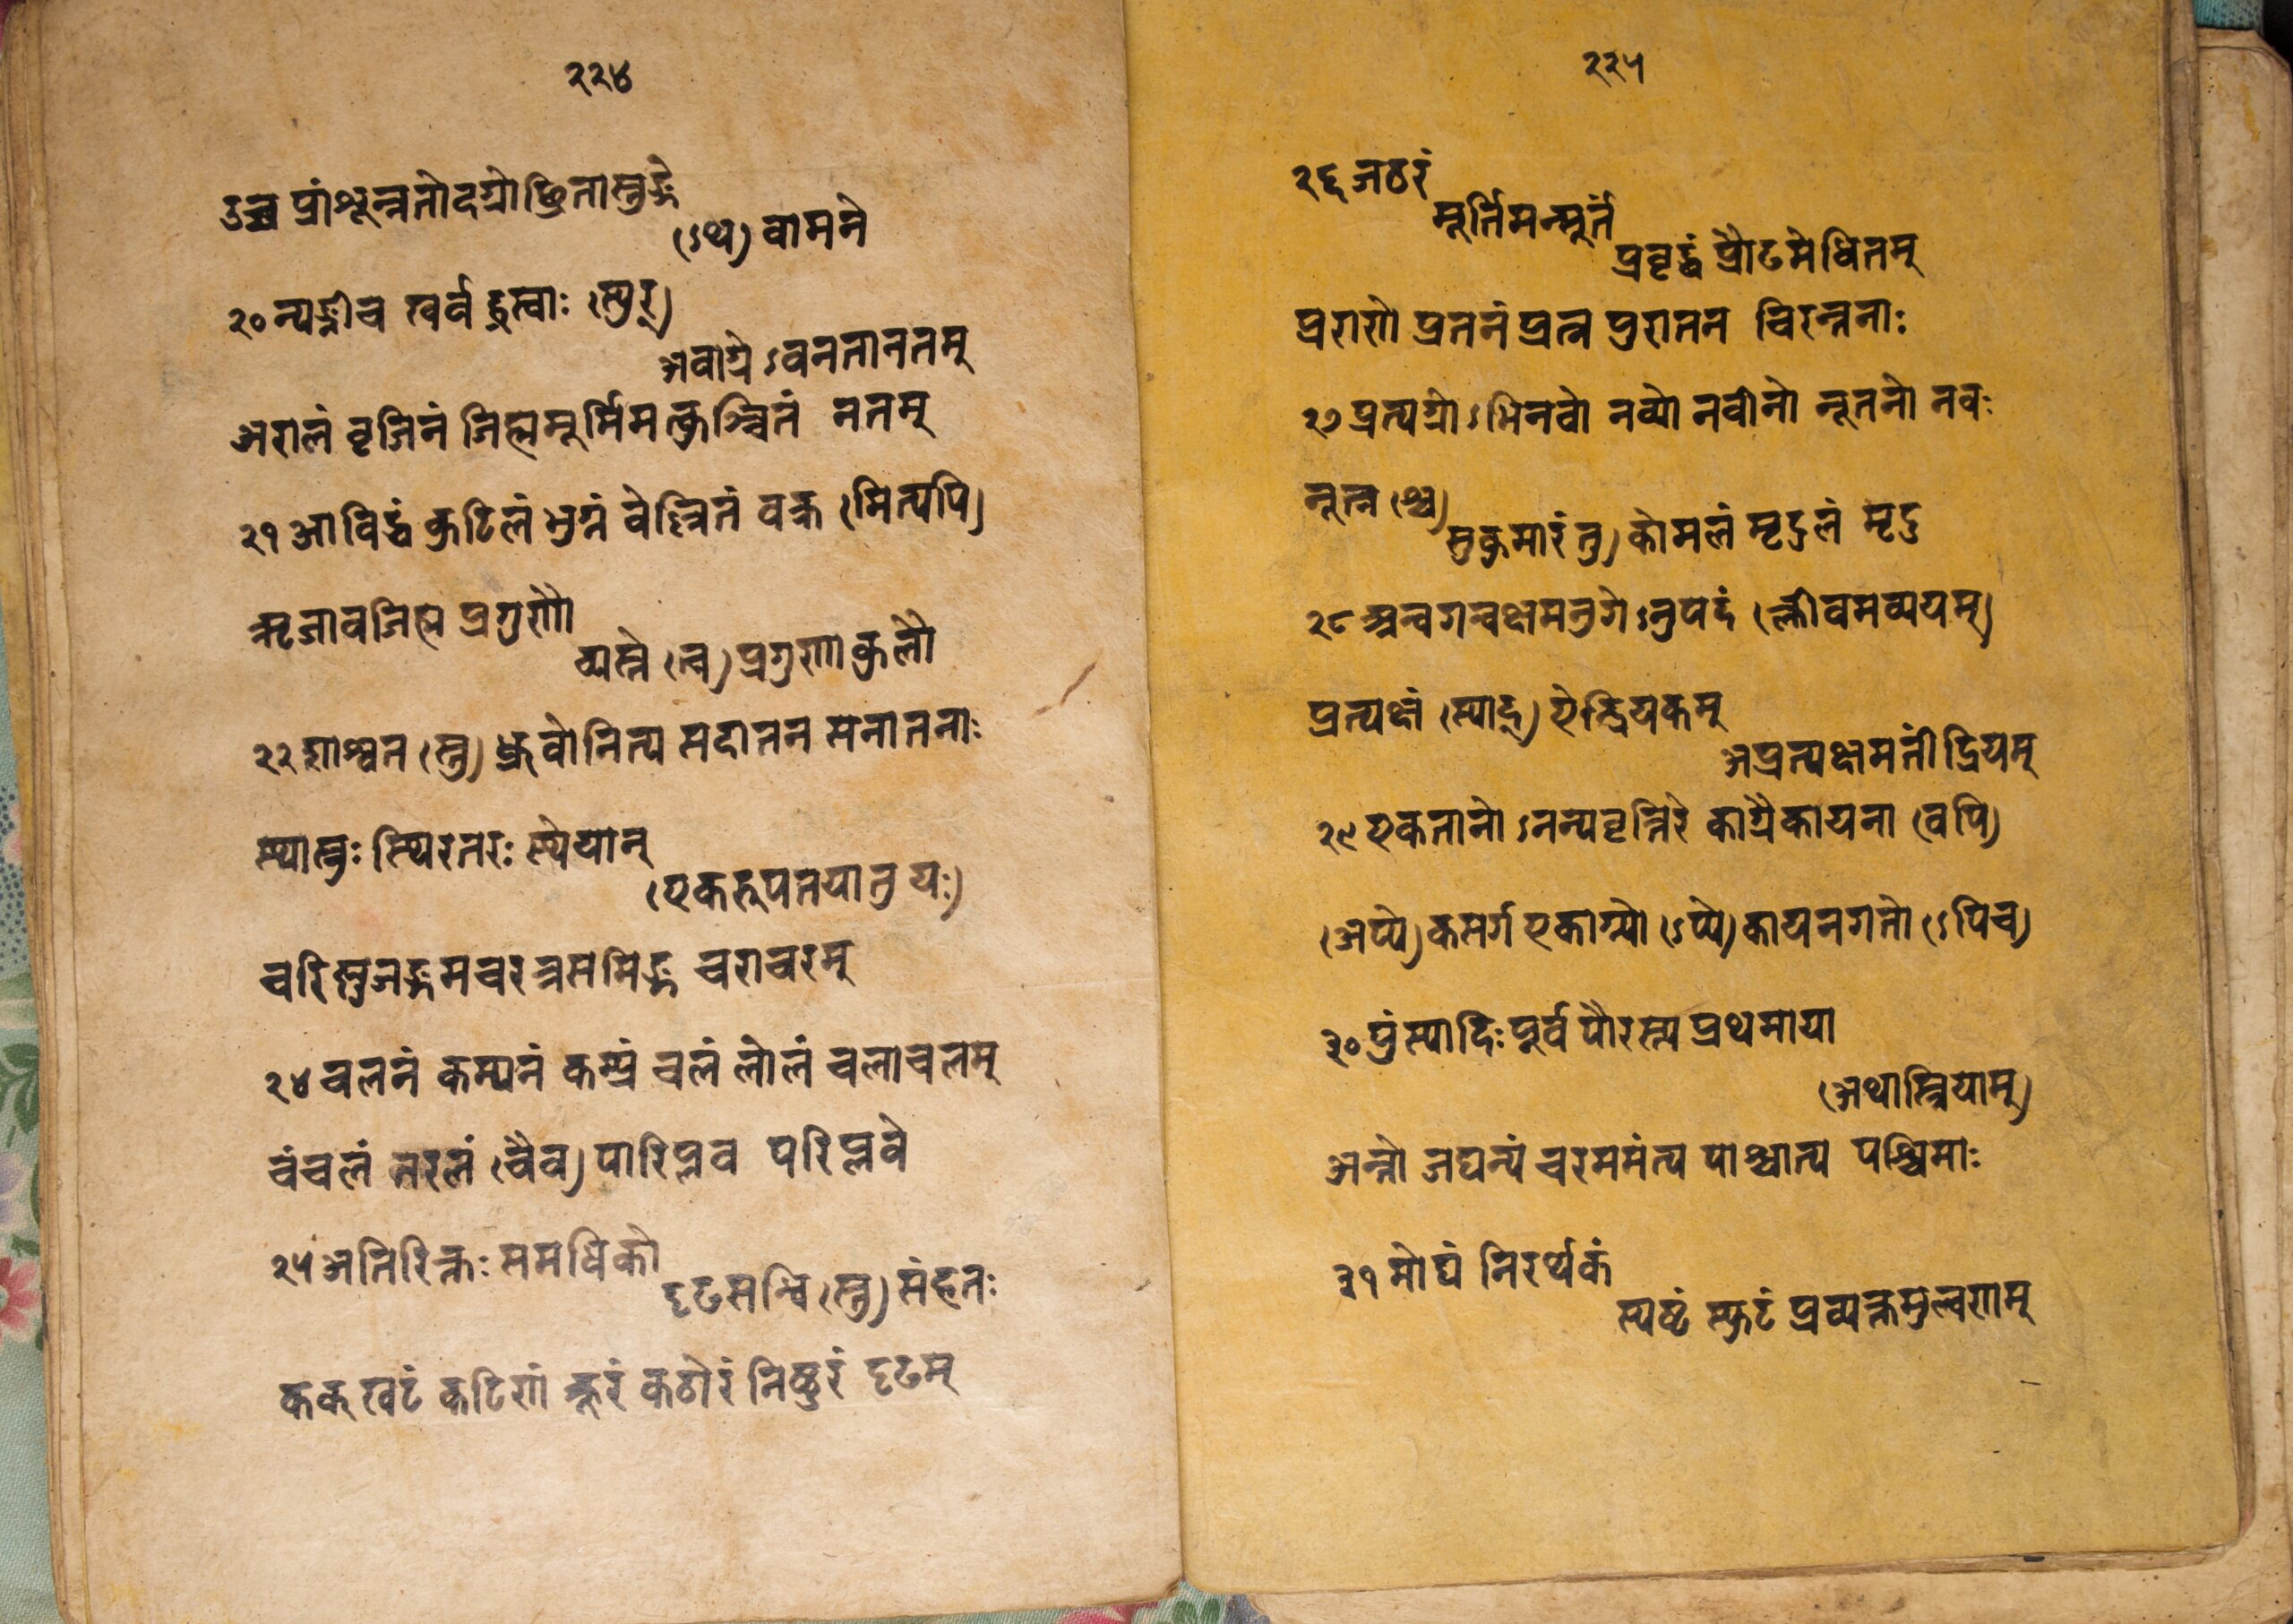 २२४
उच्च प्रांशून्नतोदग्रोछ्रितास्तुङ्गे
(ऽथ) वामने
२० न्यङ्नीच खर्व ह्रस्वाः (स्युर्)
अवाग्रेऽवनतानतम्
अरालं वृजिनं जिह्ममूर्मिमत्कुञ्चितं नतम्
२१ आविद्धं कुटिलं भुग्नं वेल्लितं वक्र (मित्यपि)
ऋजावजिह्म प्रगुणौ
व्यस्ते (त्व) प्रगुणाकुलौ
२२ शाश्वत (स्तु) ध्रुवो नित्य सदातन सनातनाः
स्थास्नुः स्थिरतरः स्थेयान्
(एकरूपतयातु यः)
चरिष्णुजङ्गमचरत्रसमिङ्ग चराचरम्
२४ चलनं कम्पनं कम्प्रं चलं लोलं चलाचलम्
चंचलं तरलं (चैव) पारिप्लव परिप्लवे
२५ अतिरिक्तः समधिको
दृढसन्धि (स्तु) संहतः
कक्खटं कटिणं क्रूरं कठोरं निष्ठुरं दृढम्
२२५
२६ जठरं
मूर्तिमन्मूर्तं
प्रवृद्धं प्रौढमेधितम्
पुराणो प्रतनं प्रत्न पुरातन चिरन्तनाः
२७ प्रत्यग्रोऽभिनवो नव्यो नवीनो नूतनो नवः
नूत्न (श्च)
सुकुमारं तु) कोमलं मृदुलं मृदु
२८ अन्वगन्वक्षमनुगेऽनुपदं (क्लीवमव्ययम्)
प्रत्यक्षं (स्याद्) एन्द्रियकम्
अप्रत्यक्षमतींद्रियम्
२९ एकतानोऽनन्यवृत्तिरे काग्रैकायना (वपि)
(अप्ये) कसर्ग एकाग्र्यो (ऽप्ये) कायनगतो (ऽपिच)
३० पुंस्यादिः पूर्व पौरस्त्य प्रथमाद्या
(अथास्त्रियाम्)
अन्तो जघन्यं चरममंत्य पाश्चात्य पश्चिमाः
३१ मोघं निरर्थकं
स्पष्टं स्फुटं प्रव्यक्तमुल्वणम्